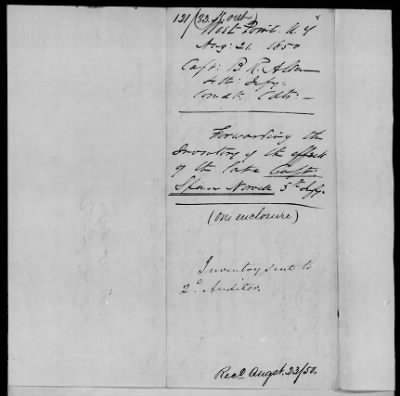 131 /
West Point N. Y
Aug: 21. 1850
Capt: B. R. Alden
4th: Infy.
Comdt: Cdts. —
Forwarding the
Inventory of the effects
of the late Capt.
Spencer Norvell 5th Infy.
(one enclosure)
Inventory sent to
2d. Auditor.
Recd Augst. 23/50.